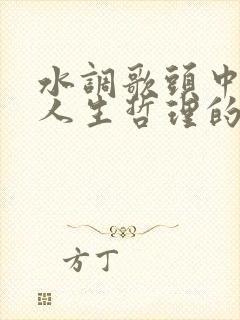 水調歌頭中
人生哲理的
方丁